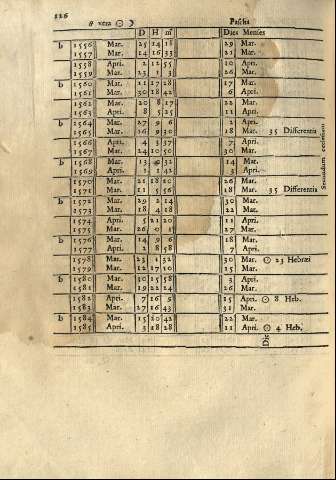 226
θ vera ☉ ☽ Pascha
D H m Dies Menses
b 1556 Mar. 25 14 18 29 Mar.
1557 Mar. 14 16 33 21 Mar.
1558 Apri. 2 12 55 10 Apri.
1559 Mar. 23 1 3 26 Mar.
b 1560 Mar. 11 17 28 17 Mar.
1561 Mar. 30 18 42 6 Apri.
1562 Mar. 20 8 17 22 Mar.
1563 Apri. 8 5 25 11 Apri.
b 1564 Mar. 27 9 6 2 Apri.
1565 Mar. 16 9 30 18 Mar. 35 Differentia
1566 Apri. 4 3 37 7 Apri.
1567 Mar. 24 10 50 30 Mar.
b 1568 Mar. 13 32 14 Mar.
1569 Apri. 1 1 42 3 Apri.
1570 Mar. 21 18 10 26 Mar.
1571 Mar. 11 5 56 18 Mar. 35 Differentia
b 1572 Mar. 29 2 14 30 Mar.
1573 Mar. 18 4 18 22 Mar.
1574 Apri. 5 21 20 11 Apri.
1575 Mar. 26 0 27 Mar.
b 1576 Mar. 14 9 6 18 Mar.
1577 Apri. 2 8 58 7 Apri.
1578 Mar. 23 1 32 30 Mar. ☉ 23 Hebræi
1579 Mar. 12 17 10 15 Mar.
b 1580 Mar. 30 15 58 3 Apri.
1581 Mar. 19 22 24 26 Mar.
1582 Apri. 7 16 9 15 Apri. ☉ 8 Heb.
1583 Mar. 27 16 43 31 Mar.
b 1584 Mar. 15 20 42 22 Mar.
1585 Apri. 3 18 28 11 Apri. ☉ 4 Heb.
Secundum
Dic